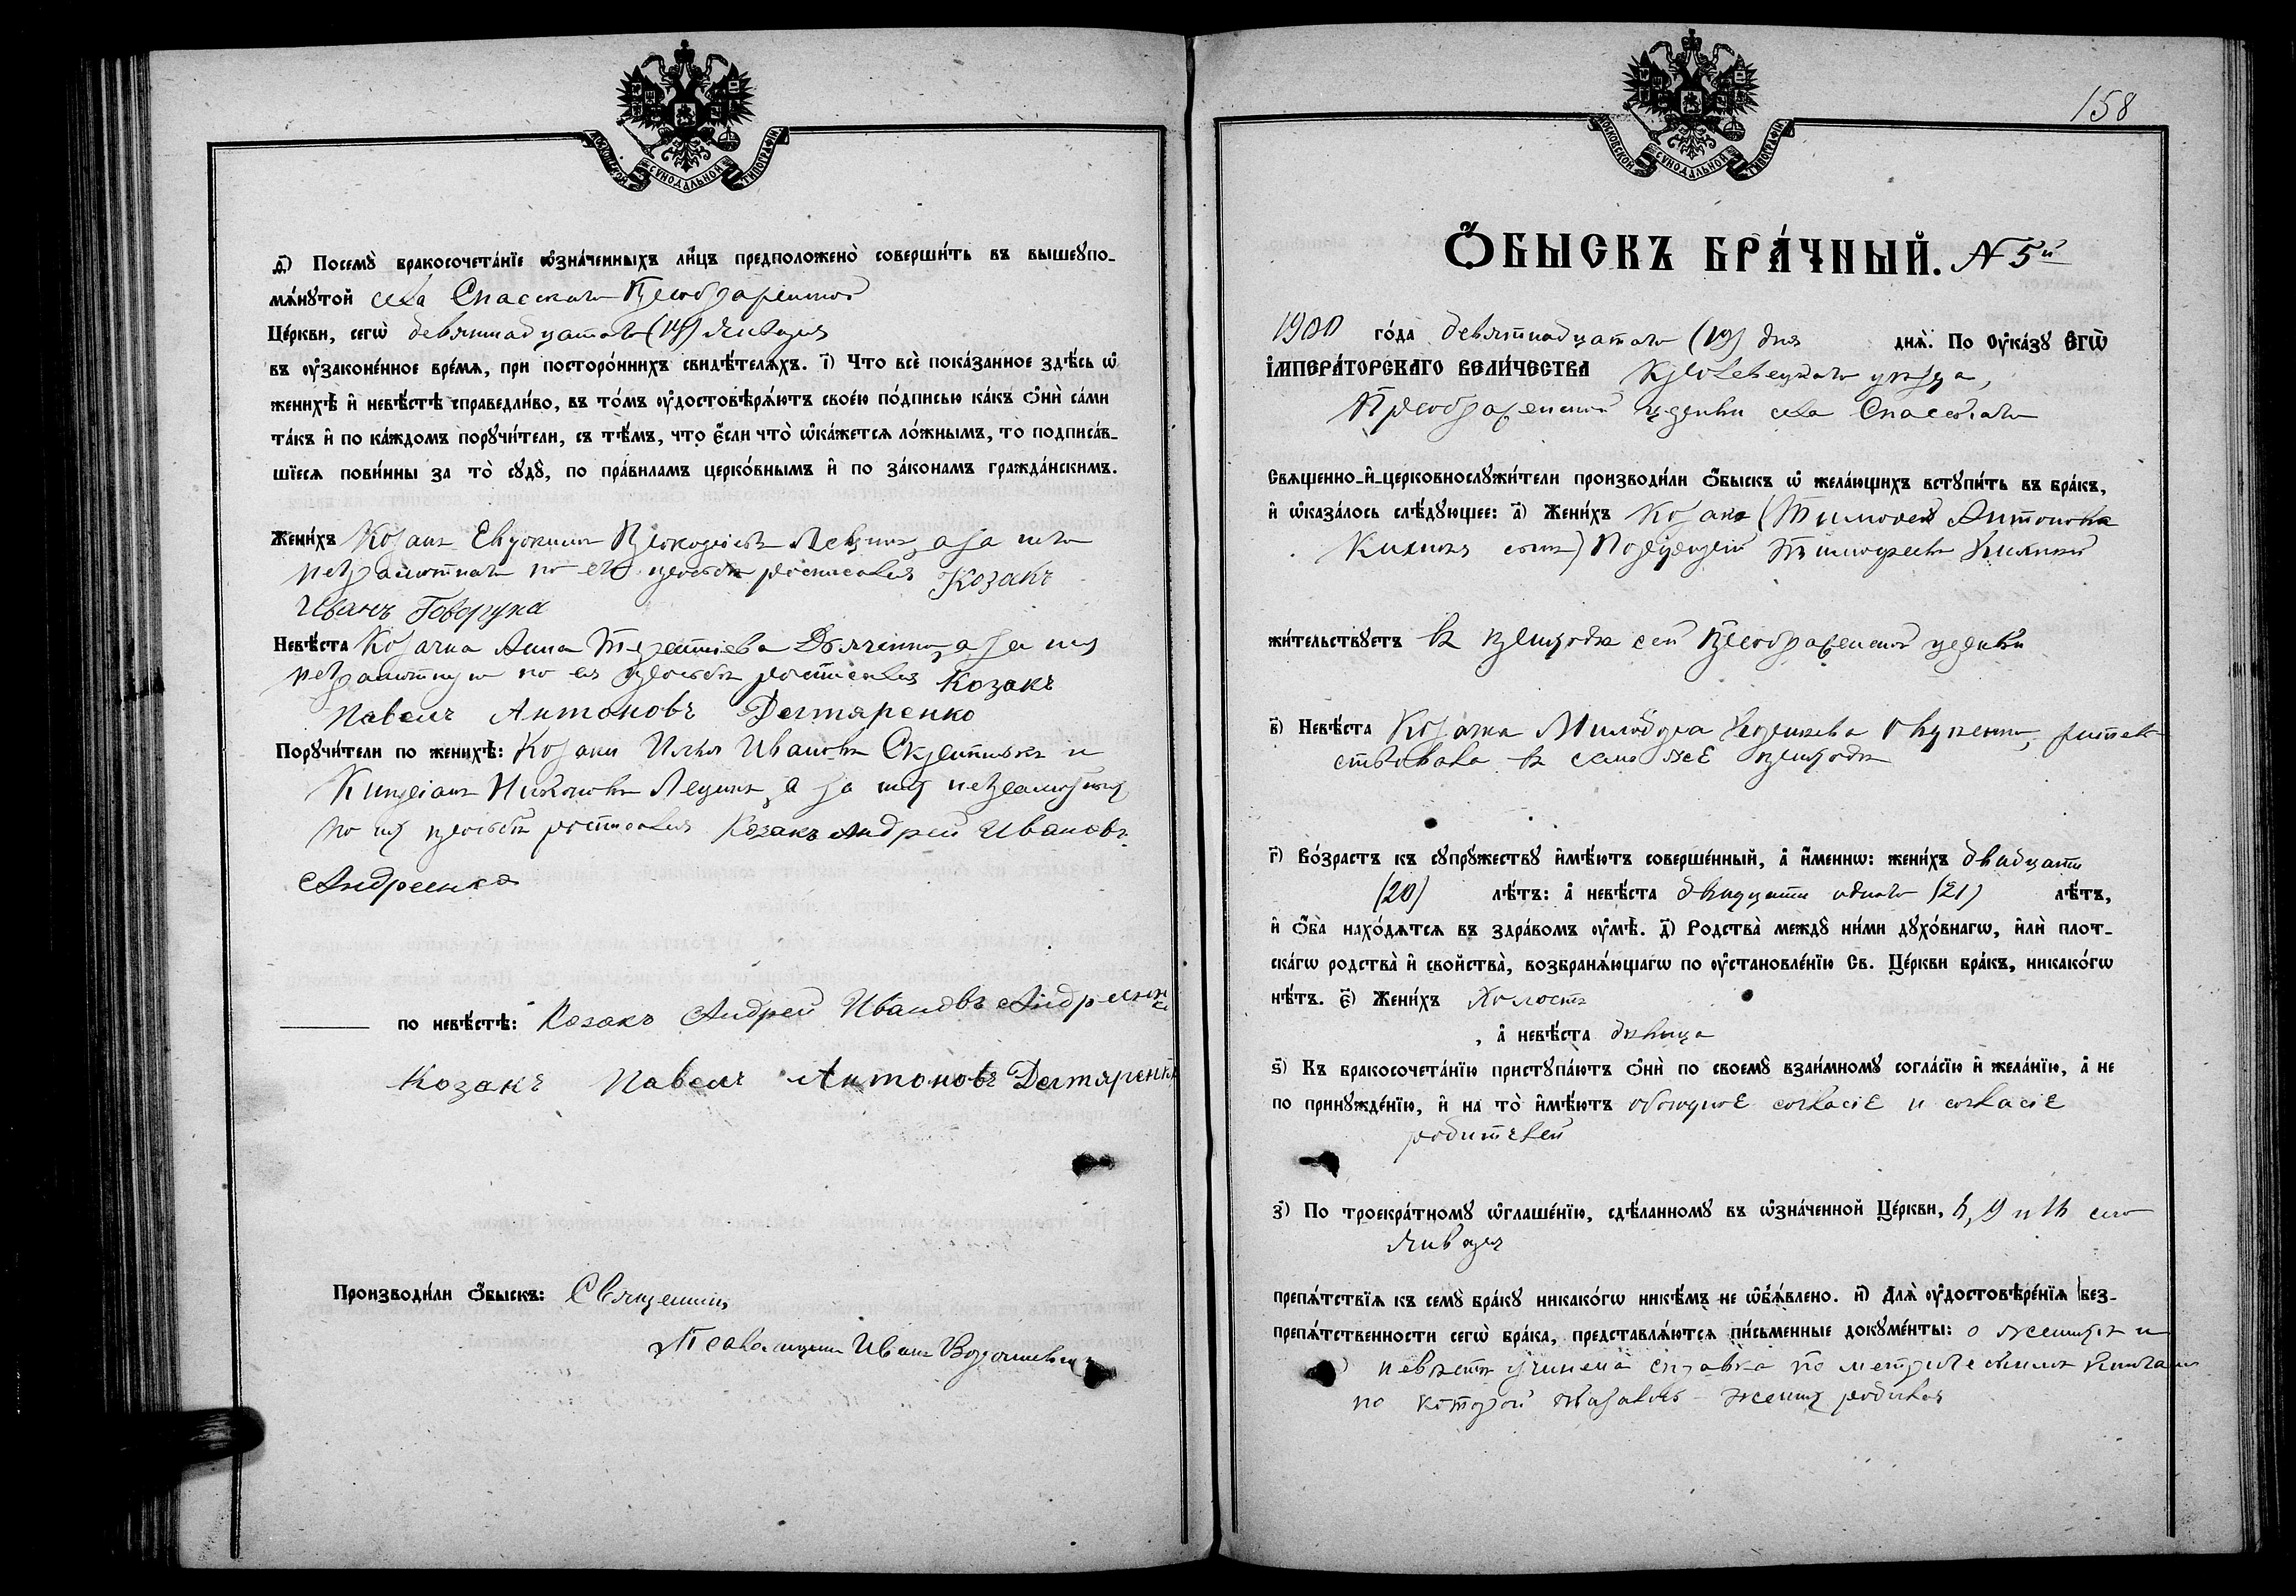 МОСКОВСКОЙ СѴНОДАЛЬНОЙ ТИПОГРАФІИ
ѳ) Посемꙋ бракосочетаніе ѡзначенныхъ лицъ предположено совершить въ вышеꙋпо-
мѧнꙋтой села Спаскаго Преображенской
Церкви, сегѡ девятнадцатаго (19) Января
въ ᲂуᲂзаконенное времѧ, при постороннихъ свидѣтелѧхъ. і) Что все показанное здѣсь ѡ
женихѣ и невѣстѣ справедливо, въ томъ ᲂудостовѣрѧютъ своею подписью какъ ѻни сами
такъ и по каждомъ порꙋчители, съ тѣмъ, что єсли что ѡкажетсѧ ложнымъ, то подписав-
шіесѧ повинны за то сꙋдꙋ, по правиламъ церковнымъ и по законамъ гражданскимъ.
Женихъ Козакъ Евдокимъ Прокопіевъ а за него
неграмотнаго по его просьбѣ росписался Козакъ
Иванъ Говоруха
Невѣста Козачка Анна Терентіева Дьяченко, а за нея
неграмотную по ея просьбѣ росписался Козакъ
Павелъ Антоновъ Дегтяренко
Порꙋчители по женихѣ: Козаки Илья Ивановъ и
Кипріанъ а за них неграмотных
по их просьбѣ росписался Козакъ Андрей Ивановъ
Андреенко
по невѣстѣ: Козакъ Андрей Ивановъ Андреенко
Козакъ Павелъ Антоновъ Дегтяренко
Производили ѻбыскъ: Священникъ
Псаломщикъ Иванъ
158
МОСКОВСКОЙ СѴНОДАЛЬНОЙ ТИПОГРАФІИ
ѺБЫСКЪ БРАЧНЫЙ. № 5й
1900 года девятнадцатаго (19) дня днѧ. По ᲂуказꙋ ЕГѠ
ІМПЕРАТОРСКАГО ВЕЛИЧЕСТВА Кролевецкаго уѣзда,
Преображенской церкви села Спаскаго
Свѧщенно-и-церковнослꙋжители производили ѻбыскъ ѡ желающихъ встꙋпить въ бракъ,
и ѡказалось слѣдꙋющее: а) Женихъ Козака (Тимоѳея Антонова
сынъ)
жительствꙋетъ в приходѣ сей Преображенской церкви
в) Невѣста Козачка житель
ствовала в семъ же приходѣ
г) Возрастъ къ сꙋпрꙋжествꙋ имѣютъ совершенный, а именнѡ: женихъ двадцати
(20) лѣтъ: а невѣста двадцати одного (21) лѣтъ,
и ѻба находѧтсѧ въ здравомъ ᲂумѣ. д) Родства междꙋ ними дꙋховнагѡ, или плот-
скагѡ родства и свойства, возбранѧющагѡ по ᲂустановленію Св. Церкви бракъ, никакогѡ
нѣтъ. є) Женихъ Холостъ
, а невѣста дѣвица
ѕ) Къ бракосочетанію пристꙋпаютъ ѻни по своемꙋ взаимномꙋ согласію и желанію, а не
по принꙋжденію, и на то имѣютъ обоюдное согласіе и согласіе
родителей
з) По троекратномꙋ ѡглашенію, сдѣланномꙋ въ ѡзначенной Церкви, 6, 9 и 16 сего
Января
препѧтствіѧ къ семꙋ бракꙋ никакогѡ никѣмъ не ѡбъѧвлено. и) Длѧ ᲂудостовѣреніѧ без-
препѧтственности сегѡ брака, представлѧются письменные докꙋменты: о женихѣ и
невѣстѣ учинена справка по метрическимъ книгамъ
по которой оказалось женихъ родился